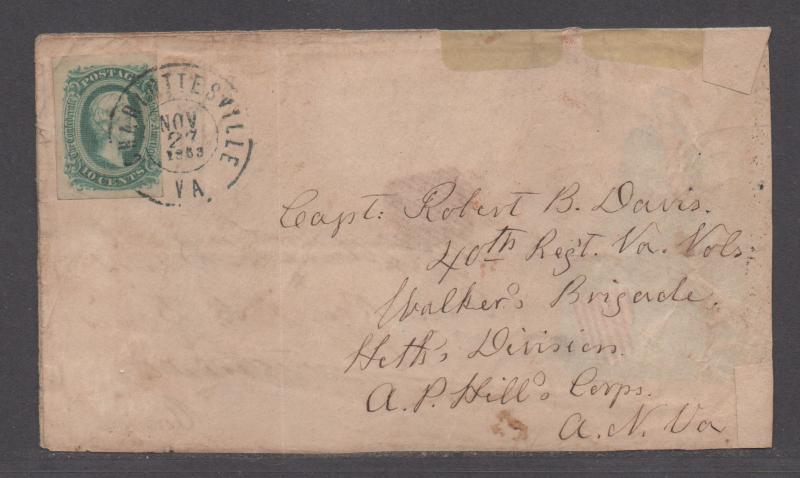 POSTAGE
The Confederate States of America
10 CENTS
CHARLOTTESVILLE
NOV
27
1863
VA.
Capt. Robert B. Davis.
40th Regt. Va. Vols.
Walker's Brigade.
Heth's Division.
A. P. Hill's Corps.
A. N. Va